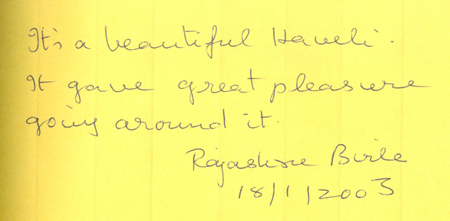 It's a beautiful Haveli.
It gave great pleasure
going around it.
Rajashree Birla
18/1/2003